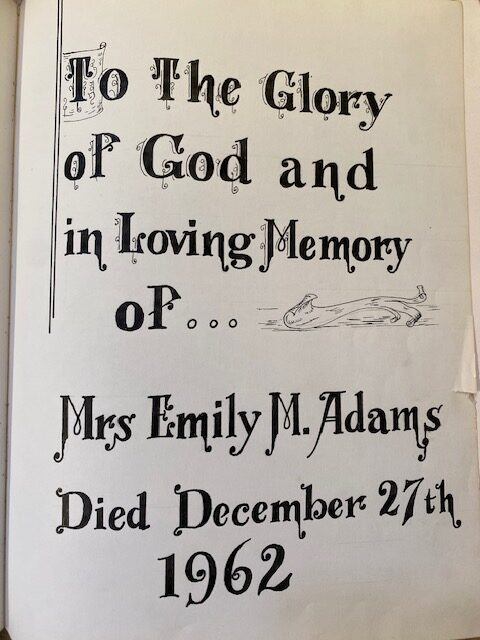 To The Glory
of God and
in Loving Memory
of...
Mrs Emily M. Adams
Died December 27th
1962